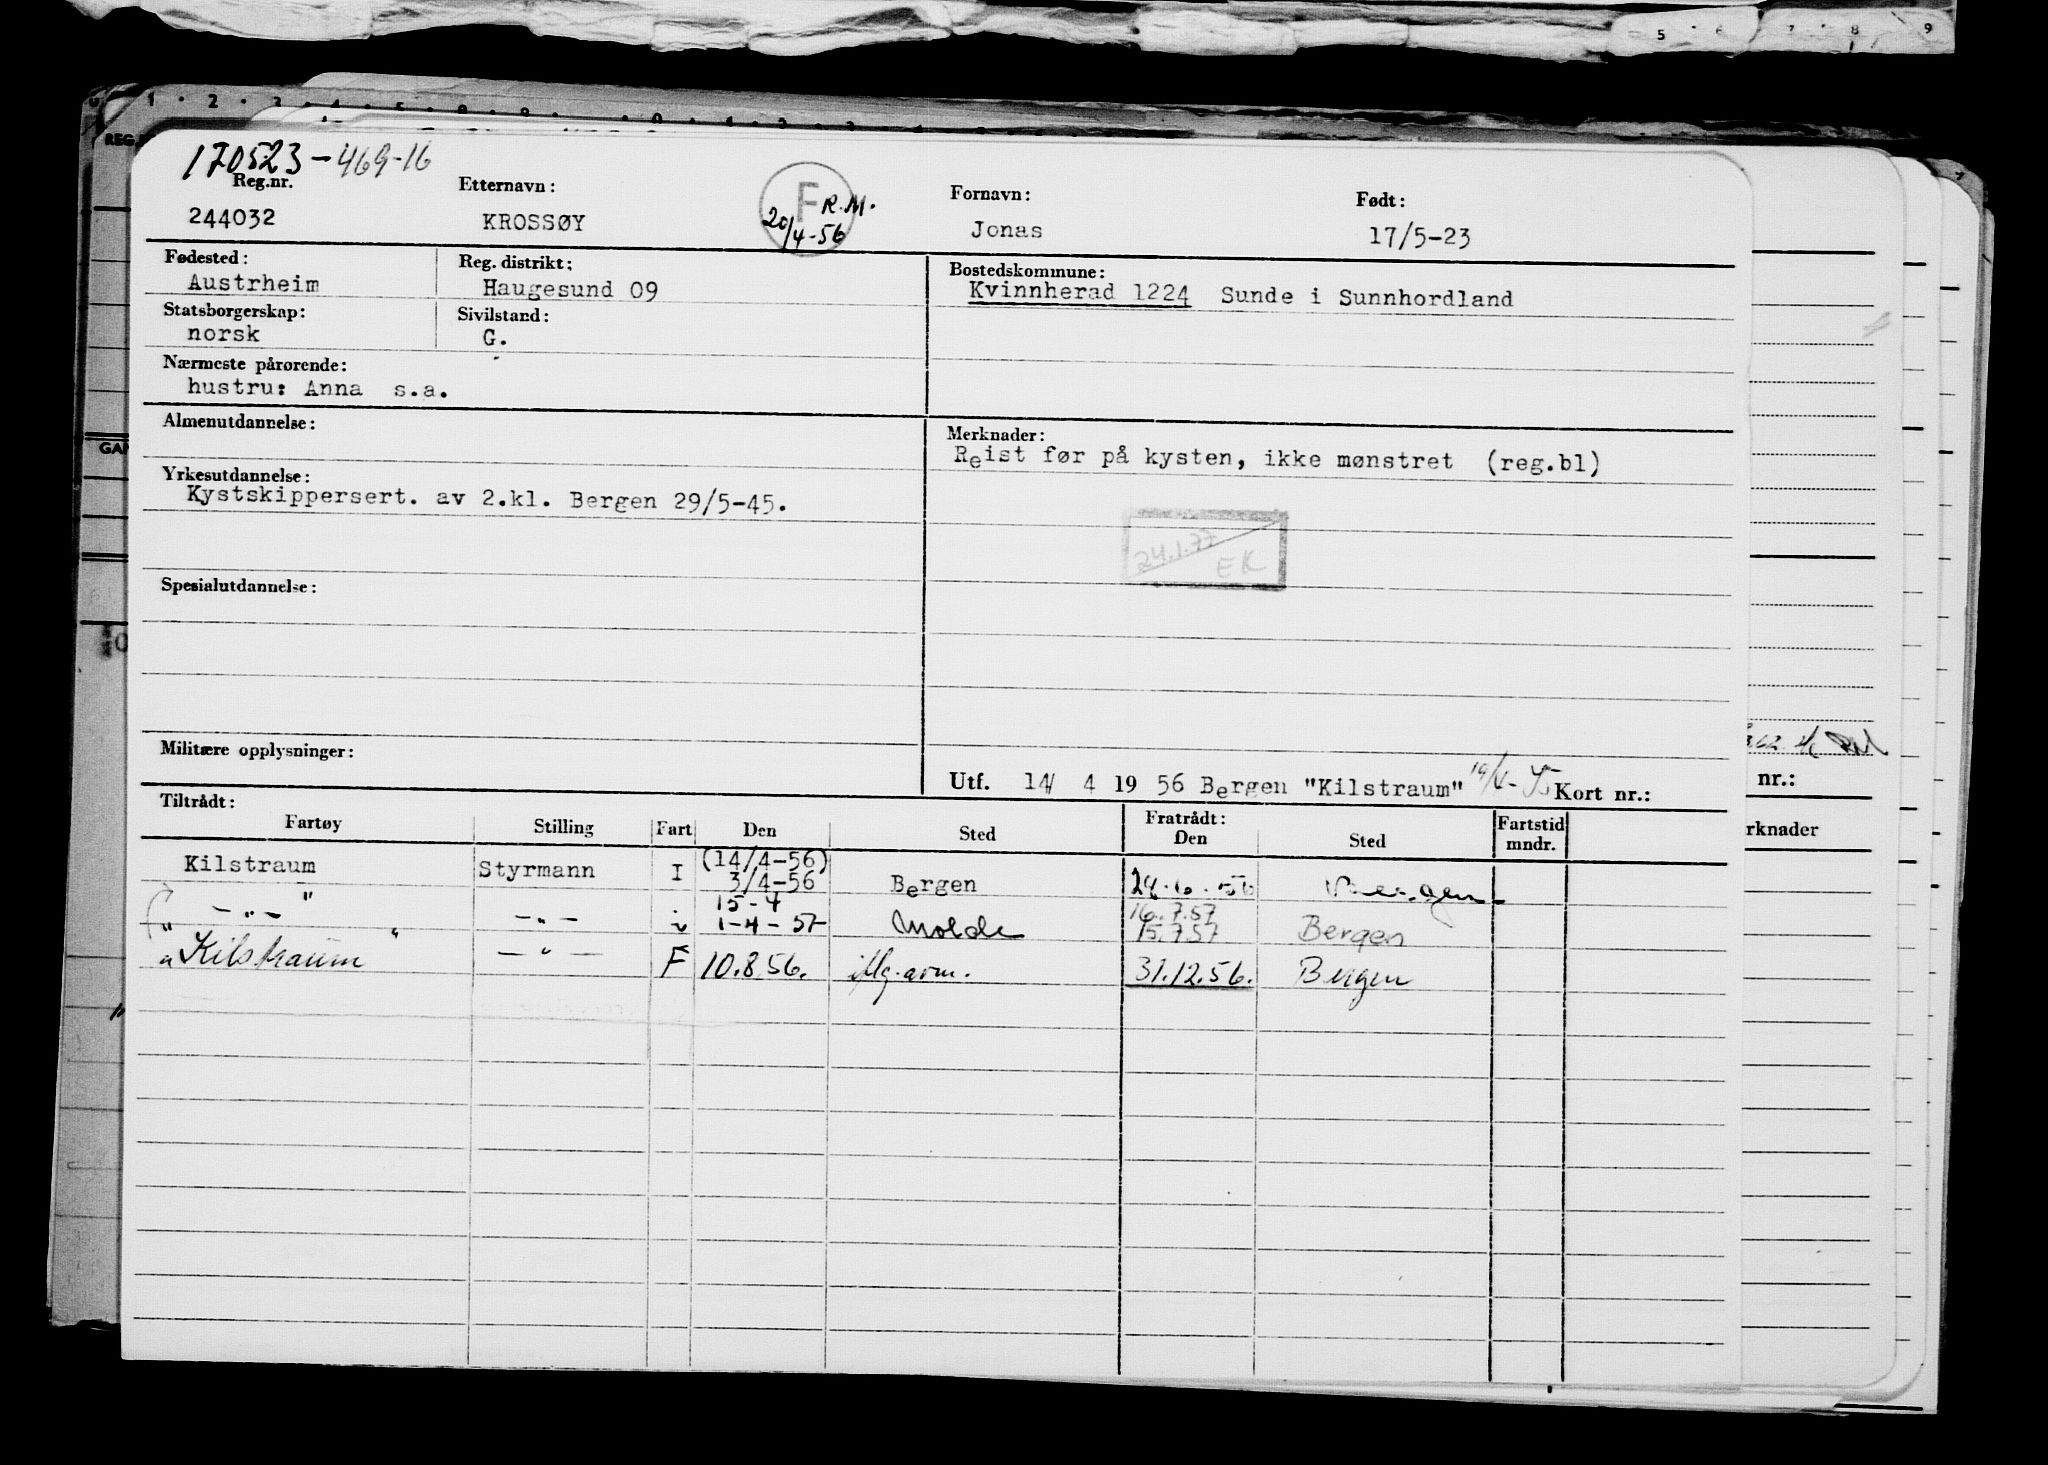 5 6 7 8 9
1 2 3 4 5
REG.
170523-469-16
Reg.nr. Etternavn: Fornavn: Født:
244032 KROSSØY F R.M. 20/4-56 Jonas 17/5-23
Fødested: Reg. distrikt: Bostedskommune:
Austrheim Haugesund 09 Kvinnherad 1224 Sunde i Sunnhordland
Statsborgerskap: Sivilstand:
norsk G.
Nærmeste pårørende:
hustru: Anna s.a.
Almenutdannelse: Merknader:
Reist før på kysten, ikke mønstret (reg.bl)
Yrkesutdannelse:
Kystskippersert. av 2.kl. Bergen 29/5-45.
24.1.77
EK
Spesialutdannelse:
Militære opplysninger:
Utf. 14/ 4 19 56 Bergen "Kilstraum" Kort nr.:
nr.:
Tiltrådt: Fratrådt:
Fartøy Stilling Fart Den Sted Den Sted Fartstid mndr.
rknader
Kilstraum Styrmann I (14/4-56) 3/4-56 Bergen
— " — " — " — i 15-4 1-4-57 Molde 16.7.57 15.7.57 Bergen
" Kilstraum — " — F 10.8.56. 31.12.56. Bergen